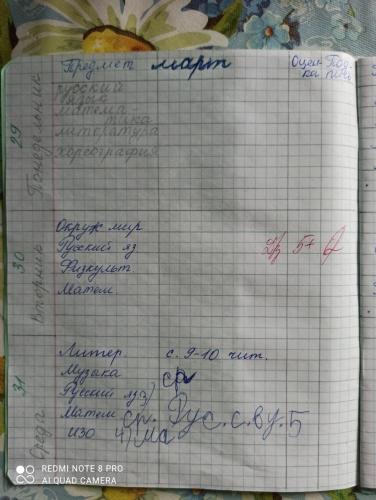 Предмет март Оцен- Под-
ка пись
29 Понедельник
русский
язык
матема-
тика
литература
хореография
30 Вторник
Окруж мир
Русский яз д/з 5+
Физкульт.
Матем.
31 Среда
Литер. с. 9-10 чит.
Музыка ср
Русский яз
Матем ср. Рус. с. ву. 5
ИЗО 4) Ма
REDMI NOTE 8 PRO
AI QUAD CAMERA